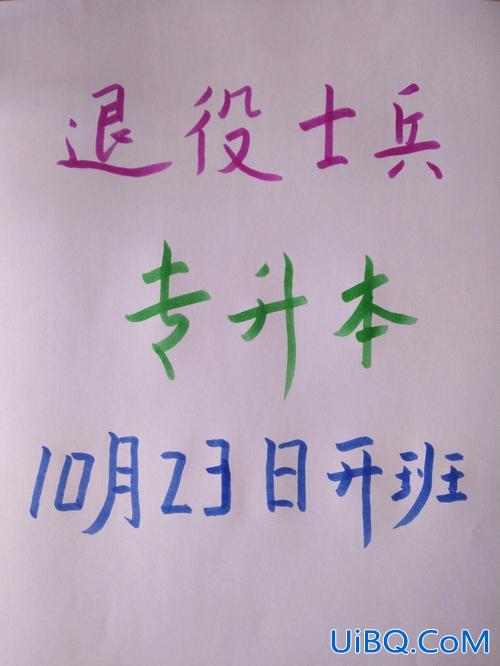 退役士兵
专升本
10月23日开班
UiBQ.CoM